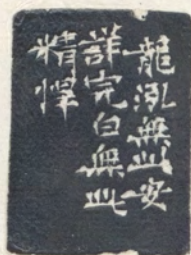 龍泓無此安
詳完白無此
精悍